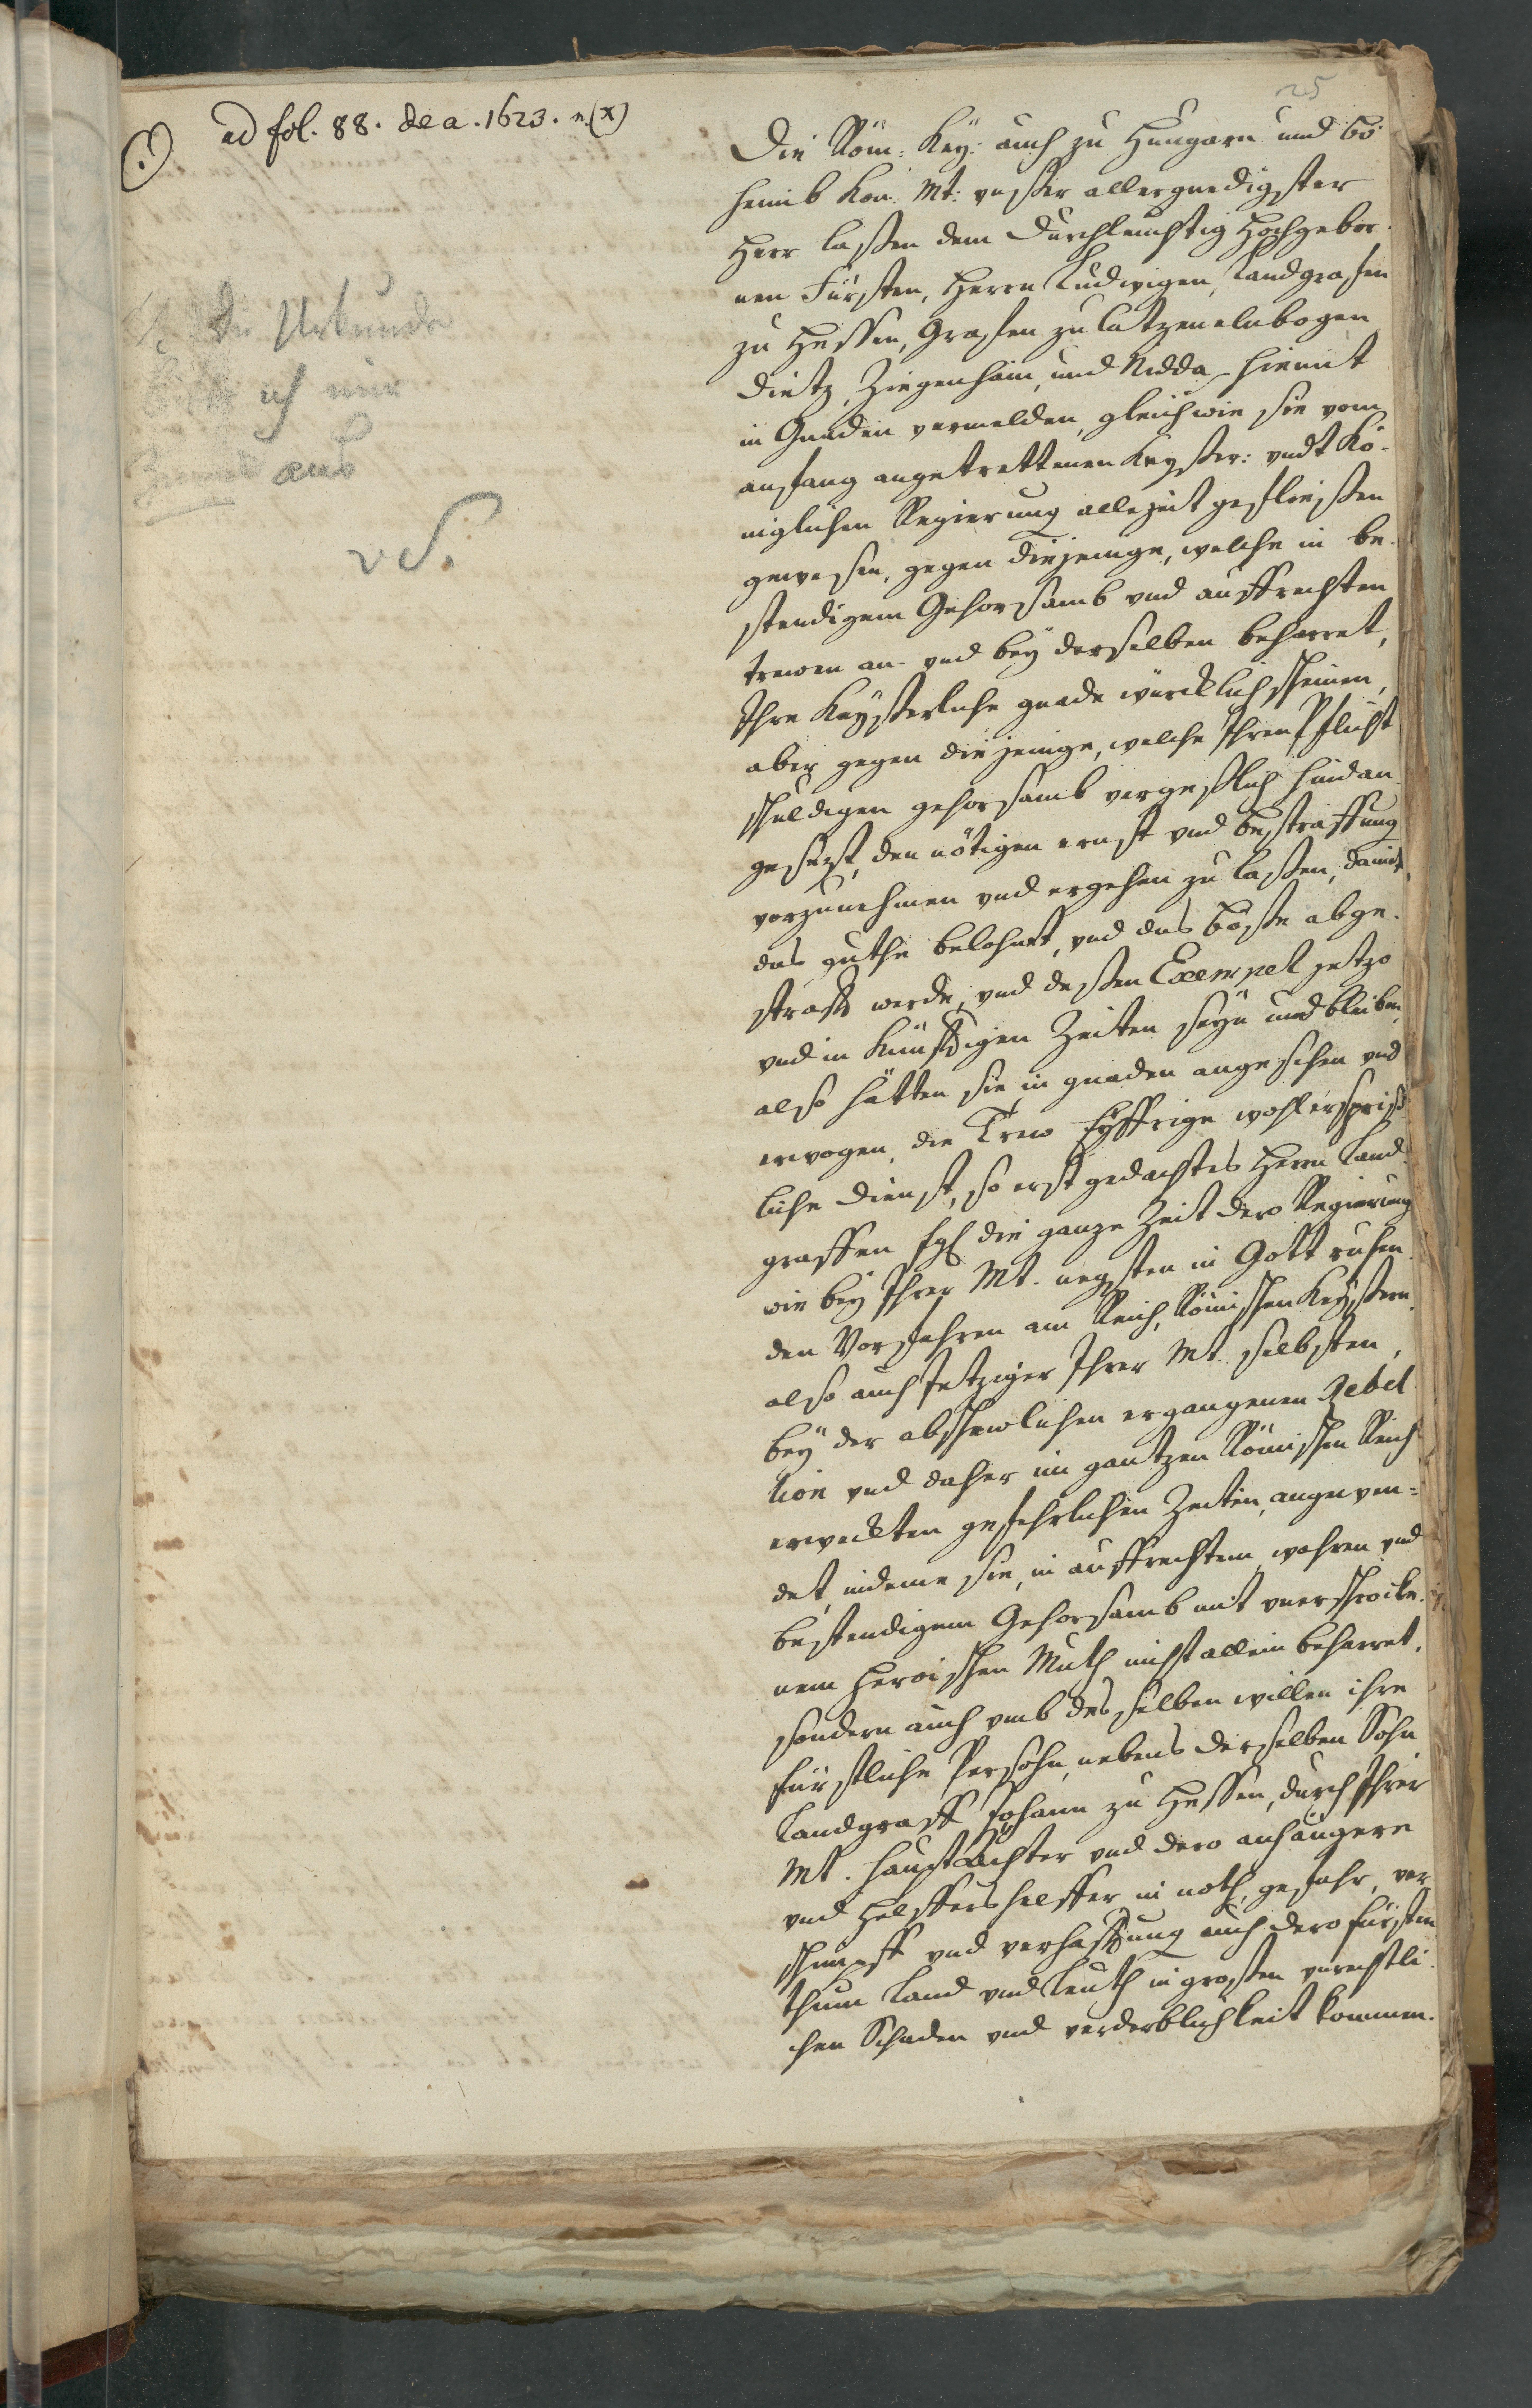 25
ad fol. 88. de a. 1623. n. (x)
Die Urkunde
ich mir
aus
vS.
Die Röm: Key: auch zu Hungarn und Bö
heimb Kön: Mt: unßer allergnedigster
Herr laßen dem Durchleuchtig Hochgebor¬
nen Fürsten, Herrn Ludwigen, Landgrafen
zu Hessen, Grafen zu Catzenelnbogen
Dietz, Ziegenhain, und Nidda hiemit
in Gnaden vermelden, gleich wie sie vom
anfang angetrettenen Keyßer: undt Kö¬
niglichen Regierung allezeit gefließen
gewesen, gegen diejenige, welche in be¬
stendigem Gehorsamb und auffrechten
trewen an- und bey derselben beharret,
Ihre Keyßerliche gnade würcklich scheinen,
aber gegen diejenige, welche Ihren Pflicht
schuldigen gehorsamb vergeßlich hindan¬
gesetzt, den nötigen ernst und bestraffung
vorzunehmen und ergehen zu laßen, damit,
das guthe belohnet, und das böße abge¬
strafft werde, und deßen Exempel jetzo
und in künfftigen Zeiten seyn und bleiben,
also hätten sie in gnaden angesehen und
erwogen, die Trew Eyffrige wohlersprieß
liche dienst, so erst gedachtes Herrn Land¬
graffen fgl die ganze Zeit dero Regierung
wie bey Ihrer Mt. negsten in Gott ruhen¬
den Vorfahren am Reich, Römischen Keyßern,
also auch Jetziger Ihrer Mt. selbsten,
bey der abschewlichen ergangenen Rebel¬
lion und daher im gantzen Römischen Reich
erweckten gefehrlichen Zeiten, angewen=
det, indeme sie, in auffrechtem, wahren und
bestendigem Gehorsamb mit unerschrocke¬
nem heroischen Muth nicht allein beharret,
sondern auch umb desselben willen ihre
fürstliche Persohn, nebens derselben Sohn
Landgraff Johann zu Hessen, durch Ihrer
Mt. hauptächter und dero anhängere
und Helffershelffer in noth, gefahr, ver¬
schimpff und verhafftung auch dero fürsten
thum Land und Leuth in großen unrechtli¬
chen Schaden und verderblichkeit kommen.